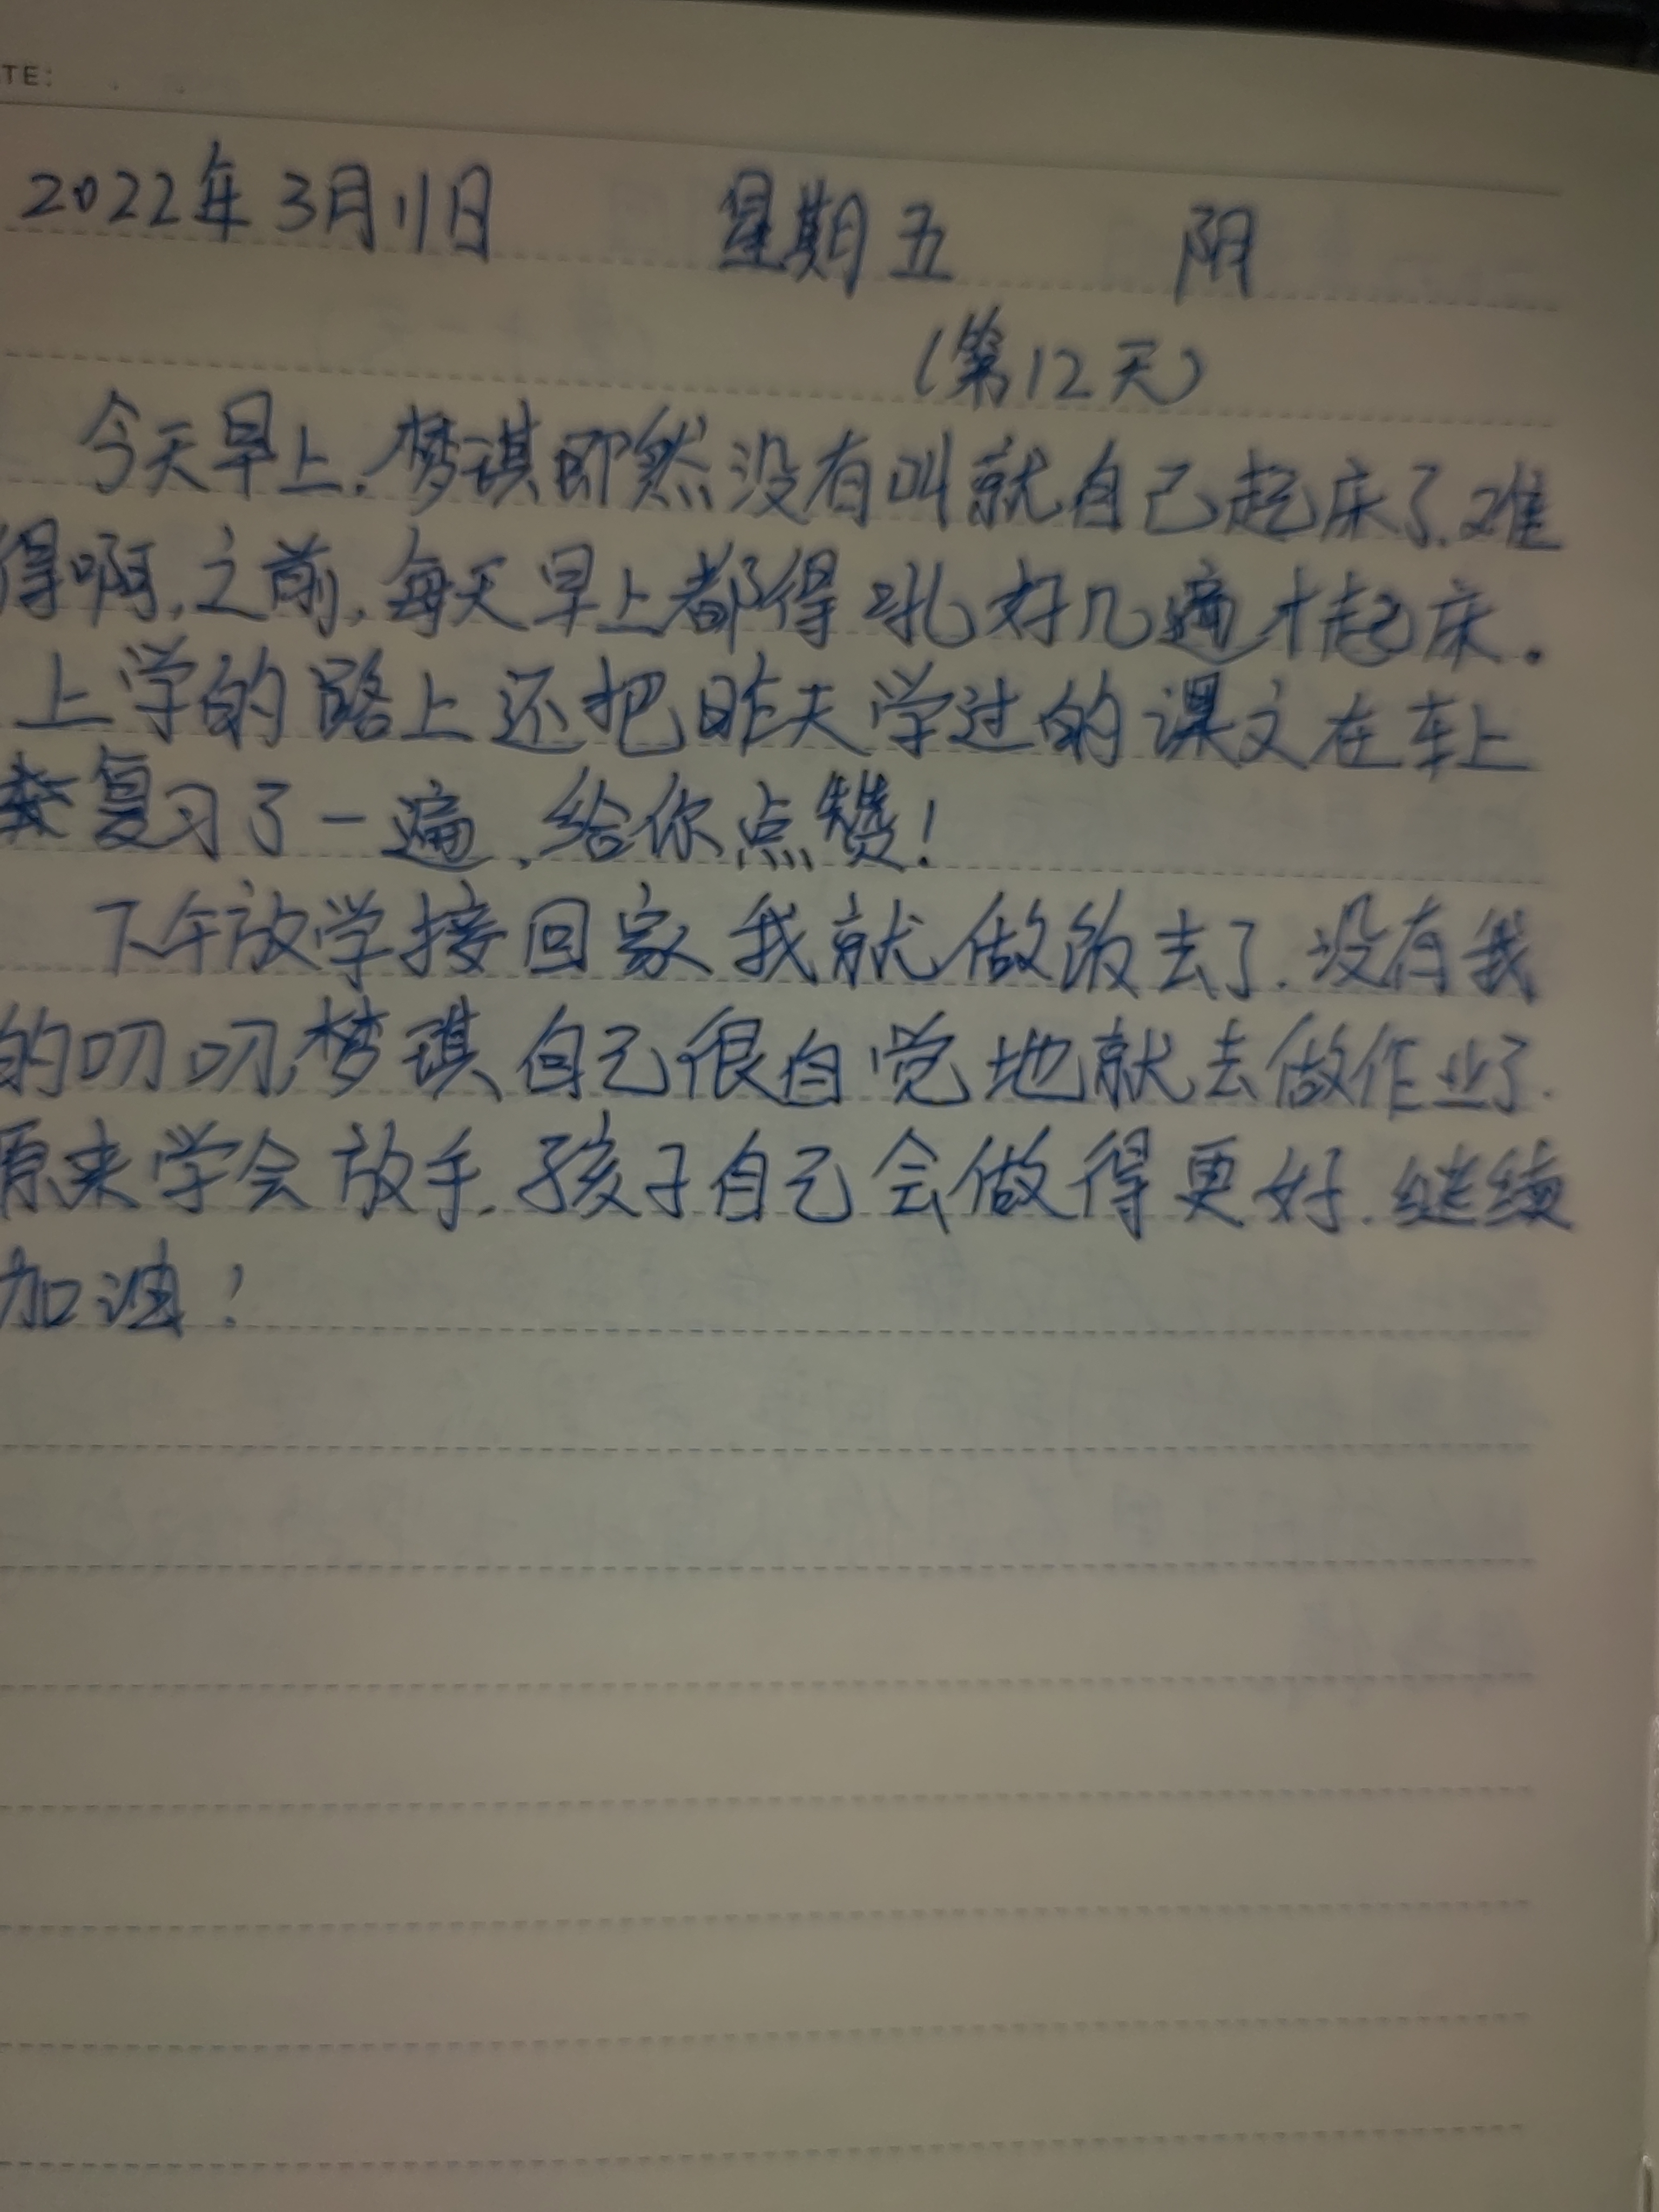 TE:
2022年3月11日 星期五 阴
(第12天)
今天早上,梦琪即然没有叫就自己起床了.难
得啊,之前,每天早上都得吼好几遍才起床。
上学的路上还把昨天学过的课文在车上
复习了一遍,给你点赞!
下午放学接回家我就做饭去了.没有我
的叨叨,梦琪自己很自觉地就去做作业了.
原来学会放手.孩子自己会做得更好.继续
加油!